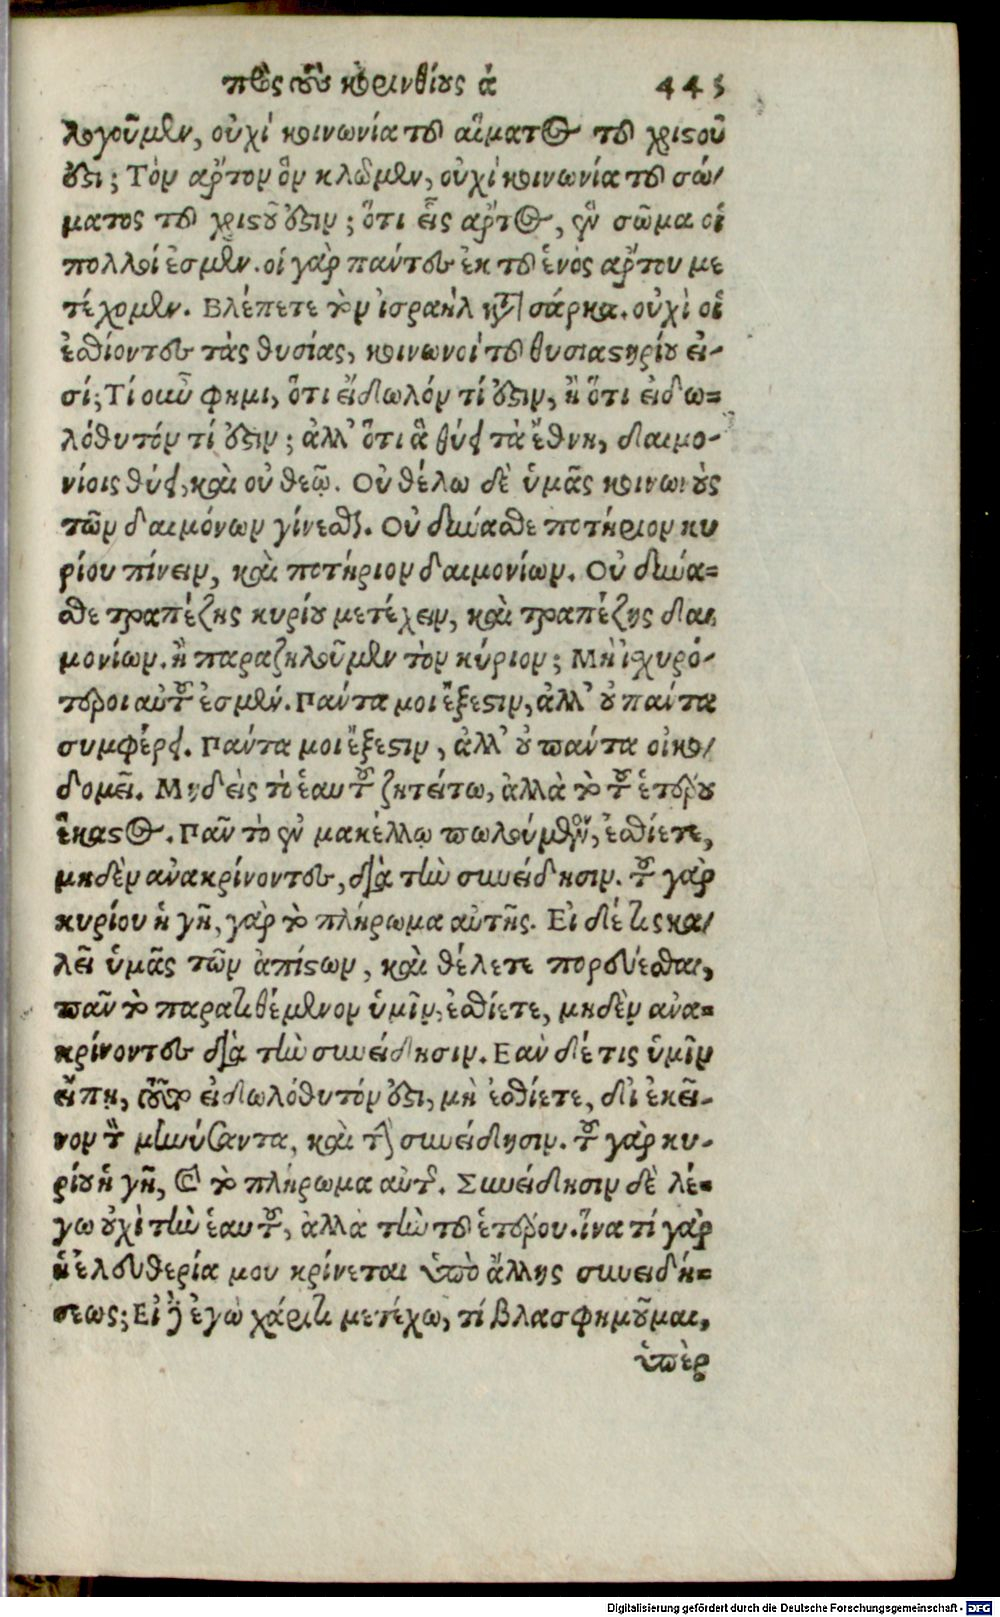 πρὸς τοὺς κορινθίους ά 445
λογοῦμεν, οὐχί κοινωνία τοῦ αἵματος τοῦ χριστοῦ
ἐστι; Τὸν ἄρτον ὃν κλῶμεν, οὐχὶ κοινωνία τοῦ σώ/
ματος τοῦ χριστοῦ ἐστιν; ὅτι εἷς ἄρτος, ἓν σῶμα οἱ
πολλοί ἐσμεν. οἱ γὰρ πάντες ἐκ τοῦ ἑνὸς ἄρτου με
τέχομεν. Βλέπετε τὸν ἰσραὴλ κατὰ σάρκα. οὐχὶ οἱ
ἐσθίοντες τὰς θυσίας, κοινωνοὶ τοῦ θυσιαστηρίου εἰ-
σί; Τί οὖν φημι, ὅτι εἴδωλόν τί ἐστιν, ἢ ὅτι εἰδω=
λόθυτόν τί ἐστιν; ἀλλ' ὅτι ἃ θύει τὰ ἔθνη, δαιμο-
νίοις θύει, καὶ οὐ θεῷ. Οὐ θέλω δὲ ὑμᾶς κοινωνοὺς
τῶν δαιμόνων γίνεσθαι. Οὐ δύνασθε ποτήριον κυ
ρίου πίνειν, καὶ ποτήριον δαιμονίων. Οὐ δύνα=
σθε τραπέζης κυρίου μετέχειν, καὶ τραπέζης δαι
μονίων. ἢ παραζηλοῦμεν τὸν κύριον; Μὴ ἰσχυρό-
τεροι αὐτοῦ ἐσμέν. Πάντα μοι ἔξεστιν, ἀλλ' οὐ πάντα
συμφέρει. Πάντα μοι ἔξεστιν, ἀλλ' οὐ πάντα οἰκο/
δομεῖ. Μηδεὶς τὸ ἑαυτοῦ ζητείτω, ἀλλὰ τὸ τοῦ ἑτέρου
ἕκαστος. Πᾶν τὸ ἐν μακέλλῳ πωλούμενον, ἐσθίετε,
μηδὲν ἀνακρίνοντες, διὰ τὴν συνείδησιν. τοῦ γὰρ
κυρίου ἡ γῆ, γὰρ τὸ πλήρωμα αὐτῆς. Εἰ δέ τις κα/
λεῖ ὑμᾶς τῶν ἀπίστων, καὶ θέλετε πορεύεσθαι,
πᾶν τὸ παρατιθέμενον ὑμῖν, ἐσθίετε, μηδὲν ἀνα=
κρίνοντες διὰ τὴν συνείδησιν. Εαν δέ τις ὑμῖν
εἴπῃ, τοῦτο εἰδωλόθυτόν ἐστι, μὴ ἐσθίετε, δι' ἐκεῖ-
νον τὸν μηνύσαντα, καὶ τὴν συνείδησιν. τοῦ γὰρ κυ-
ρίου ἡ γῆ, καὶ τὸ πλήρωμα αὐτῆς. Συνείδησιν δὲ λέ=
γω οὐχὶ τὴν ἑαυτοῦ, ἀλλὰ τὴν τοῦ ἑτέρου. ἵνα τί γὰρ
ἡ ἐλευθερία μου κρίνεται ὑπὸ ἄλλης συνειδή=
σεως; Εἰ δὲ ἐγὼ χάριτι μετέχω, τί βλασφημοῦμαι,
ὑπὲρ
Digitalisierung gefördert durch die Deutsche Forschungsgemeinschaft - DFG